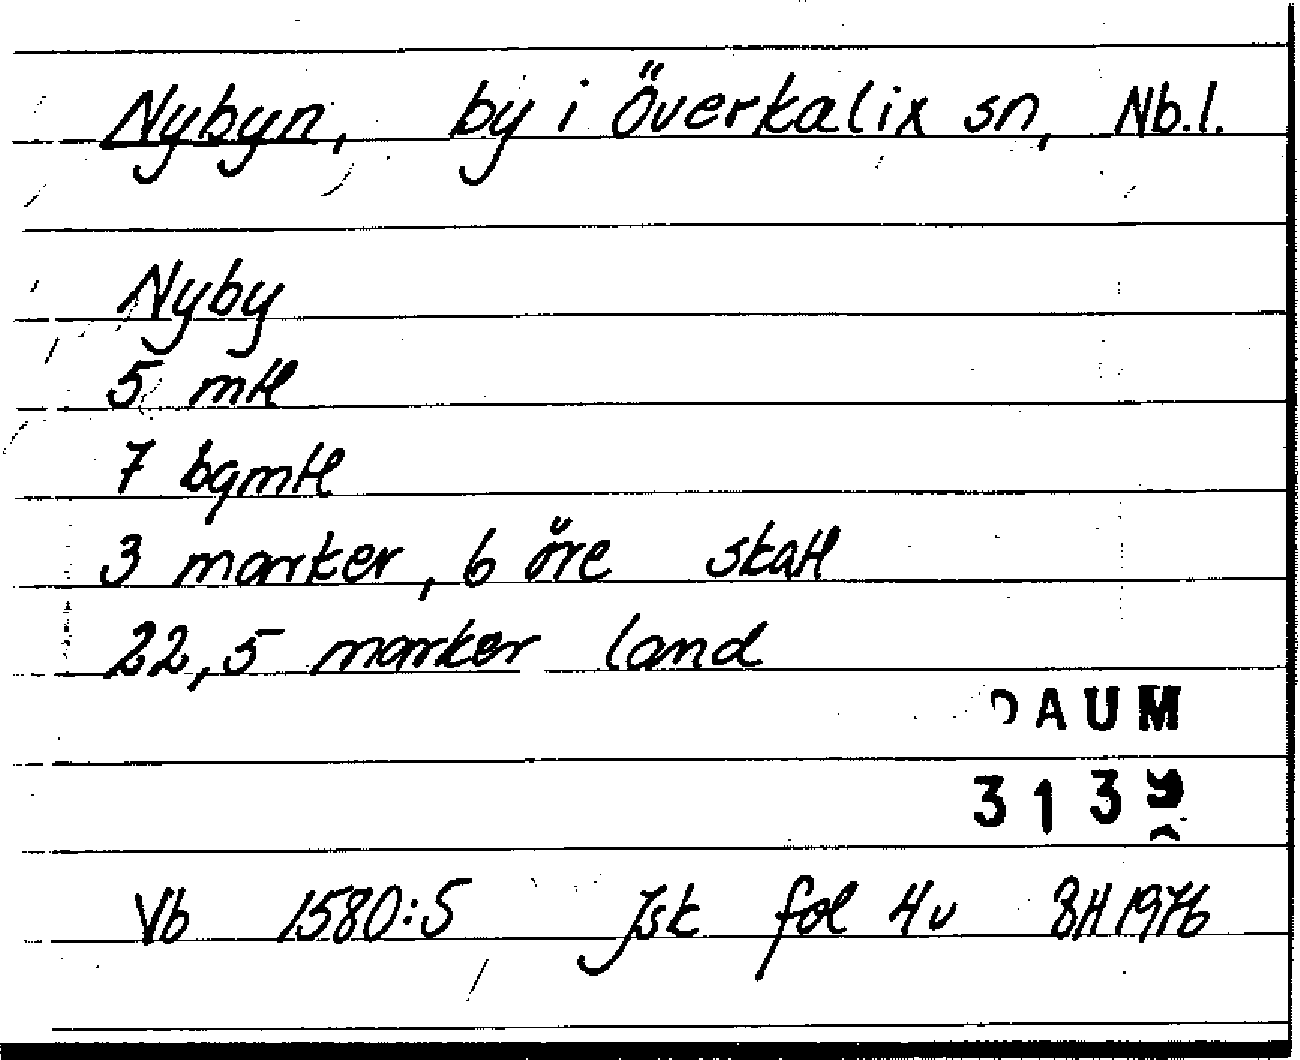 Nybyn, by i Överkalix sn, Nb.l.
Nyby
5 mtl
7 bgmtl
3 marker, 6 öre skatt
22,5 marker land
DAUM
3139
Vb 1580:5 Jsk fol 4v BH 1976